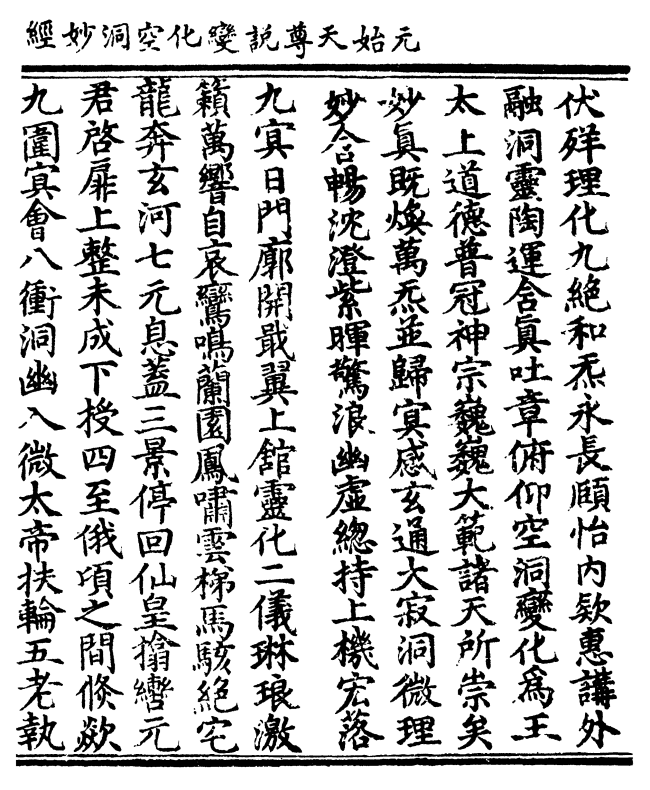 元始天尊說變化空洞妙經
伏羘理化九絶和炁永長頤怡内欵惠講外
融洞靈陶運含眞吐章俯仰空洞變化爲王
太上道德普冠神宗巍巍大範諸天所崇矣
妙眞旣煥萬炁並歸㝠感玄通大寂洞微理
妙含暢沈澄紫暉驚浪幽虛緫持上機宏落
九㝠日門廓開戢翼上館靈化二儀琳琅激
籟萬響自哀鸞鳴蘭園鳳嘯雲梯馬駭絶宅
龍奔玄河七元息蓋三景停回仙皇搚轡元
君啓扉上整未成下授四至俄頃之間倏歘
九圍㝠會八衝洞幽入微太帝扶輪五老執